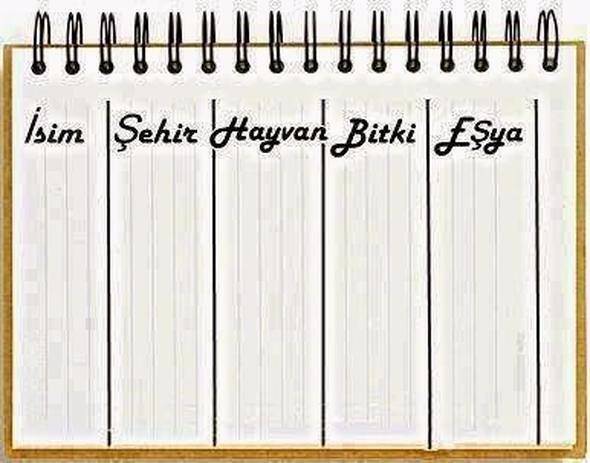 İsim Şehir Hayvan Bitki EŞya